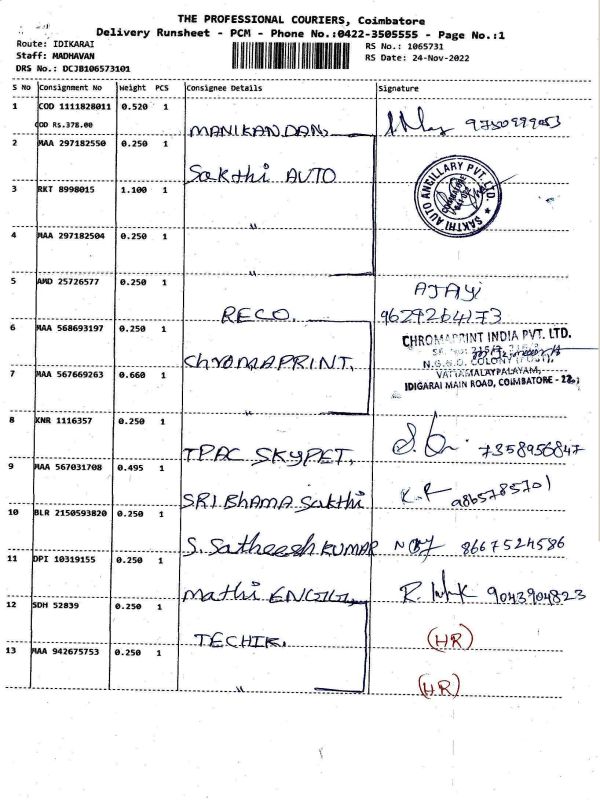 THE PROFESSIONAL COURIERS, Coimbatore
Delivery Runsheet - PCM - Phone No.:0422-3505555 - Page No.:1
Route: IDIKARAI
RS No.: 1065731
Staff: MADHAVAN
RS Date: 24-Nov-2022
DRS No.: DCJB106573101
S No Consignment No Weight PCS Consignee Details Signature
1 COD 1111828011 0.520 1
COD Rs.378.00 MANIKANDAN, 9750999053
2 MAA 297182550 0.250 1
Sakthi AUTO
SAKTHI AUTO ANCILLARY PVT. LTD.
3 RKT 8998015 1.100 1
"
4 MAA 297182504 0.250 1
"
5 AMD 25726577 0.250 1
RECO. AJAYi
9629264173
6 MAA 568693197 0.250 1
CHROMAPRINT INDIA PVT. LTD.
ChROMAPRINT.
N.G.G.O. COLONY (POST),
VATTAMALAYPALAYAM,
IDIGARAI MAIN ROAD, COIMBATORE - 22.
7 MAA 567669263 0.660 1
8 KNR 1116357 0.250 1
TPAC SKYPET, 7358956847
9 MAA 567031708 0.495 1
SRI BhAMA Sakthi K.R 9865785701
10 BLR 2150593820 0.250 1
S. Satheesh KUMAR 8667524586
11 DPI 10319155 0.250 1
Mathi ENGG, 9043904823
12 SDH 52839 0.250 1
TECHIK. (HR)
13 MAA 942675753 0.250 1
" (HR)